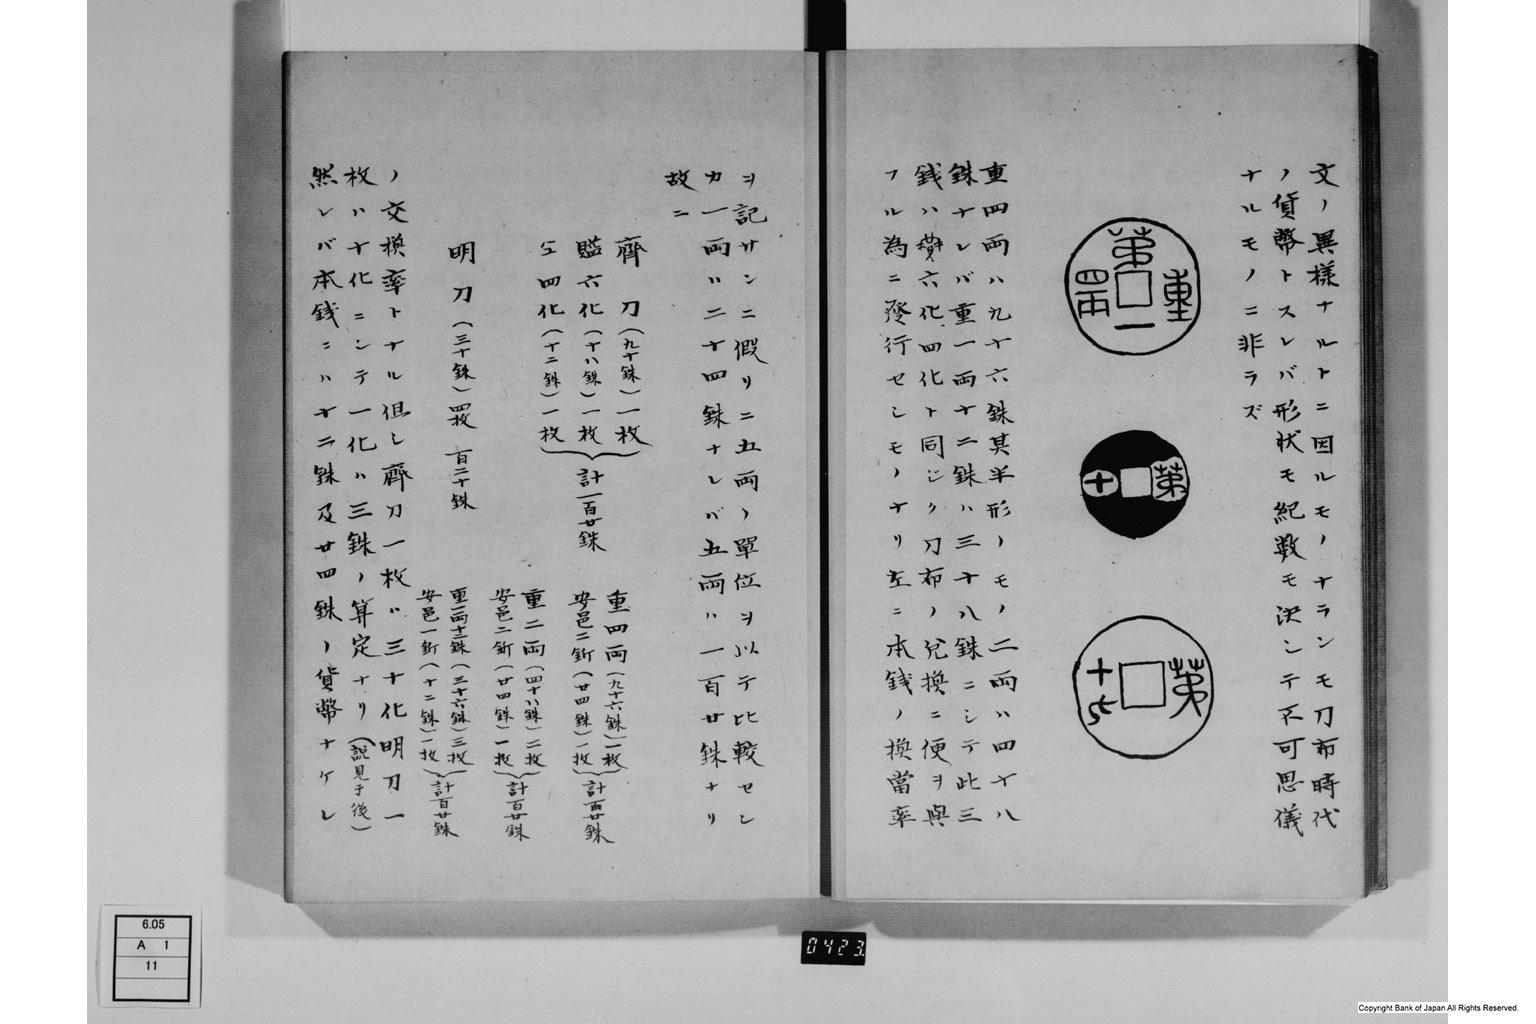 文ノ異樣ナルトニ因ルモノナランモ刀布時代
ノ貨幣トスレバ形状モ紀数モ決シテ不可思儀
ナルモノニ非ラズ
第一
重四両
第十
第十五
重四両ハ九十六銖其半形ノモノ二両ハ四十八
銖ナレバ重一両十二銖ハ三十八銖ニシテ此三
銭ハ六化四化ト同ジク刀布ノ兌換ニ便ヲ與
フル為ニ發行セシモノナリ左ニ本銭ノ換當率
ヲ記サンニ假リニ五両ノ單位ヲ以テ比較セシ
カ一両ハ二十四銖ナレバ五両ハ一百廿銖ナリ
故ニ
齊刀(九十銖)一枚
賹六化(十八銖)一枚
四化(十二銖)一枚
計一百廿銖
重四両(九十六銖)一枚
安邑二釿(廿四銖)一枚
計百廿銖
重二両(四十八銖)二枚
安邑二釿(廿四銖)一枚
計百廿銖
明刀(三十銖)四枚 百二十銖
重一両十二銖(三十六銖)三枚
安邑一釿(十二銖)一枚
計百廿銖
ノ交換率トナル但し齊刀一枚ハ三十化明刀一
枚ハ十化ニシテ一化ハ三銖ノ算定ナリ(説見于後)
然レバ本銭ニハ十二銖及廿四銖ノ貨幣ナケレ
6.05
A 1
11
0423
Copyright Bank of Japan All Rights Reserved.